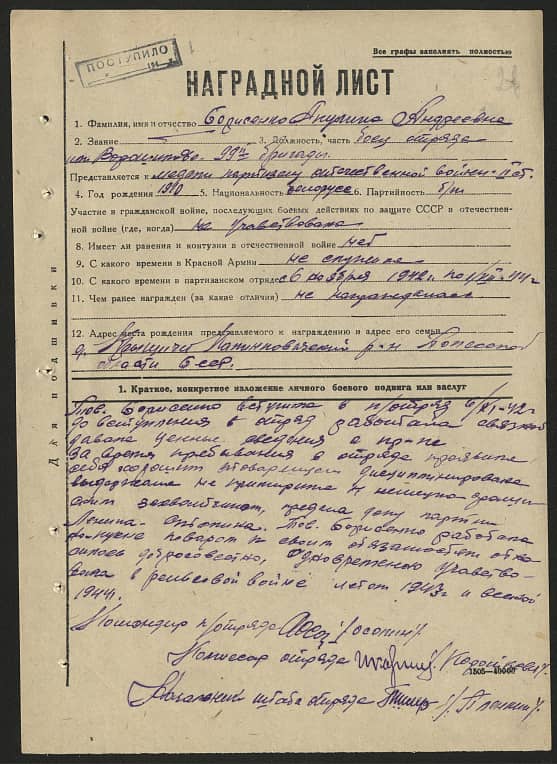 Все графы заполнять полностью
ПОСТУПИЛО
НАГРАДНОЙ ЛИСТ
1. Фамилия, имя и отчество Борисенко Акулина Андреевна
2. Звание 3. Должность, часть боец отряда
им. Ворошилова 99й бригады
Представляется к медали партизану отечественной войны II ст.
4. Год рождения 1910 5. Национальность белорусс 6. Партийность б/п
Участие в гражданской войне, последующих боевых действиях по защите СССР и отечествен-
ной войне (где, когда) не участвовала
8. Имеет ли ранения и контузии в отечественной войне нет
9. С какого времени в Красной Армии не служила
10. С какого времени в партизанском отряде с 6 ноября 1942г. по
11. Чем ранее награжден (за какие отличия) не награждалась
12. Адрес места рождения представляемого к награждению и адрес его семьи
д. р-н Полесской
области БССР.
Для подшивки
1. Краткое, конкретное изложение личного боевого подвига или заслуг
Тов. Борисенко вступила в п/отряд 6/XI-42г
до вступления в отряд работала связной
давала ценные сведения о пр-ке
За время пребывания в отряде проявила
себя хорошим товарищем дисциплинирована
выдержана не примирима к немецко-фаши
стским захватчикам, предана делу партии
Ленина-Сталина. Тов. Борисенко работала
поваром к своим обязанностям отно
силась добросовестно, одновременно участво-
вала в рельсовой войне летом 1943г и весной
1944г.
Командир п/отряда
Комиссар отряда
1505—40000
Начальник штаба отряда